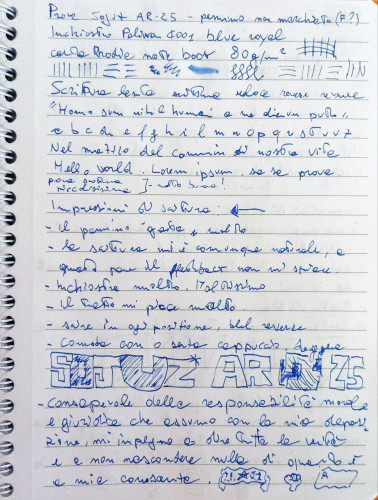 Prova Sojuz AR-25 - pennino non marchiato (F?)
Inchiostro Pelikan 4001 blue royal
carta Rhodia note book 80 g/m²
Scrittura lenta scrittura veloce reverse reverse
"Homo sum nihil humani a me alienum puto"
a b c d e f g h i l m n o p q r s t u v z
Nel mezzo del cammin di nostra vita
Hello world. Lorem ipsum, sa sa prova
prova scrittura
piccolissima ]- molto buona!
Impressioni di scrittura: ←
- Il pennino gratta molto
- la scrittura mi è comunque naturale, e
questo tipo di feedback non mi spiace.
- Inchiostra molto. Moltissimo
- Il tratto mi piace molto
- scrive in ogni posizione, bel reverse
- Comoda con o senza cappuccio, leggera
SOJUZ AR-25
- consapevole della responsabilità morale
e giuridica che assumo con la mia deposi
zione, mi impegno a dire tutta la verità
e a non nascondere nulla di quanto è
a mia conoscenza.